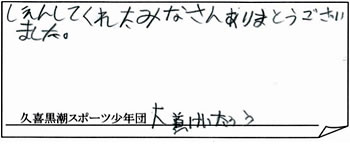 しえんしてくれたみなさんありまとうござい
ました。
久喜黒潮スポーツ少年団 大